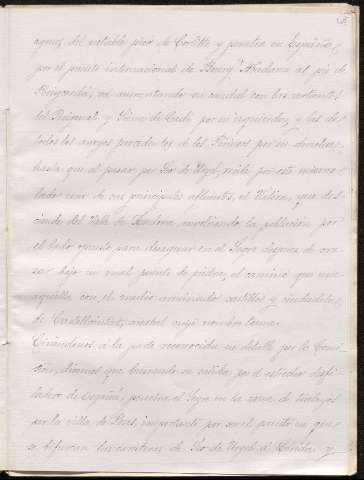 aguas del notable pico de Carlitte y penetra en España,
por el puente internacional de Bourg Madame al pié de
Puigcerdá, vá aumentando su caudal con las vertientes
del Puigmal y Sierra de Cadi por su izquierda, y las de
todos los arroyos procedentes de los Pirineos por su derecha,
hasta que al pasar por Seo de Urgel, recibe por este mismo
lado uno de sus principales afluentes, el Valira, que des-
ciende del Valle de Andorra, invadiendo la poblacion por
el lado opuesto para desaguar en el Segre despues de cru-
zar bajo un mal puente de piedra, el camino que une
aquella con el medio arruinado castillo y ciudadela
de Castellciutat, arrabal cuyo nombre toma.
Ciñendonos á la parte reconocida en detalle por la Comi-
sión, diremos que buscando su salida por el estrecho desfi-
ladero de España, penetra el Segre en la zona de trabajos
por la villa de Pons, importante por ser el punto en que
se bifurcan las carreteras de Seo de Urgel á Lérida y